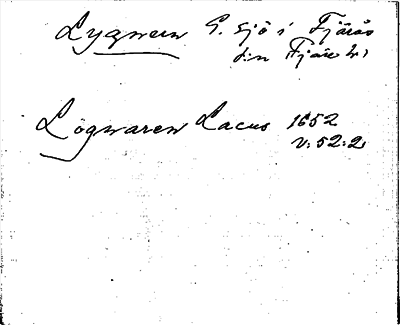 Lygnern G. sjö i Fjärås
Fjäre hd
Lögnaren Lacus 1652
v. 52:2